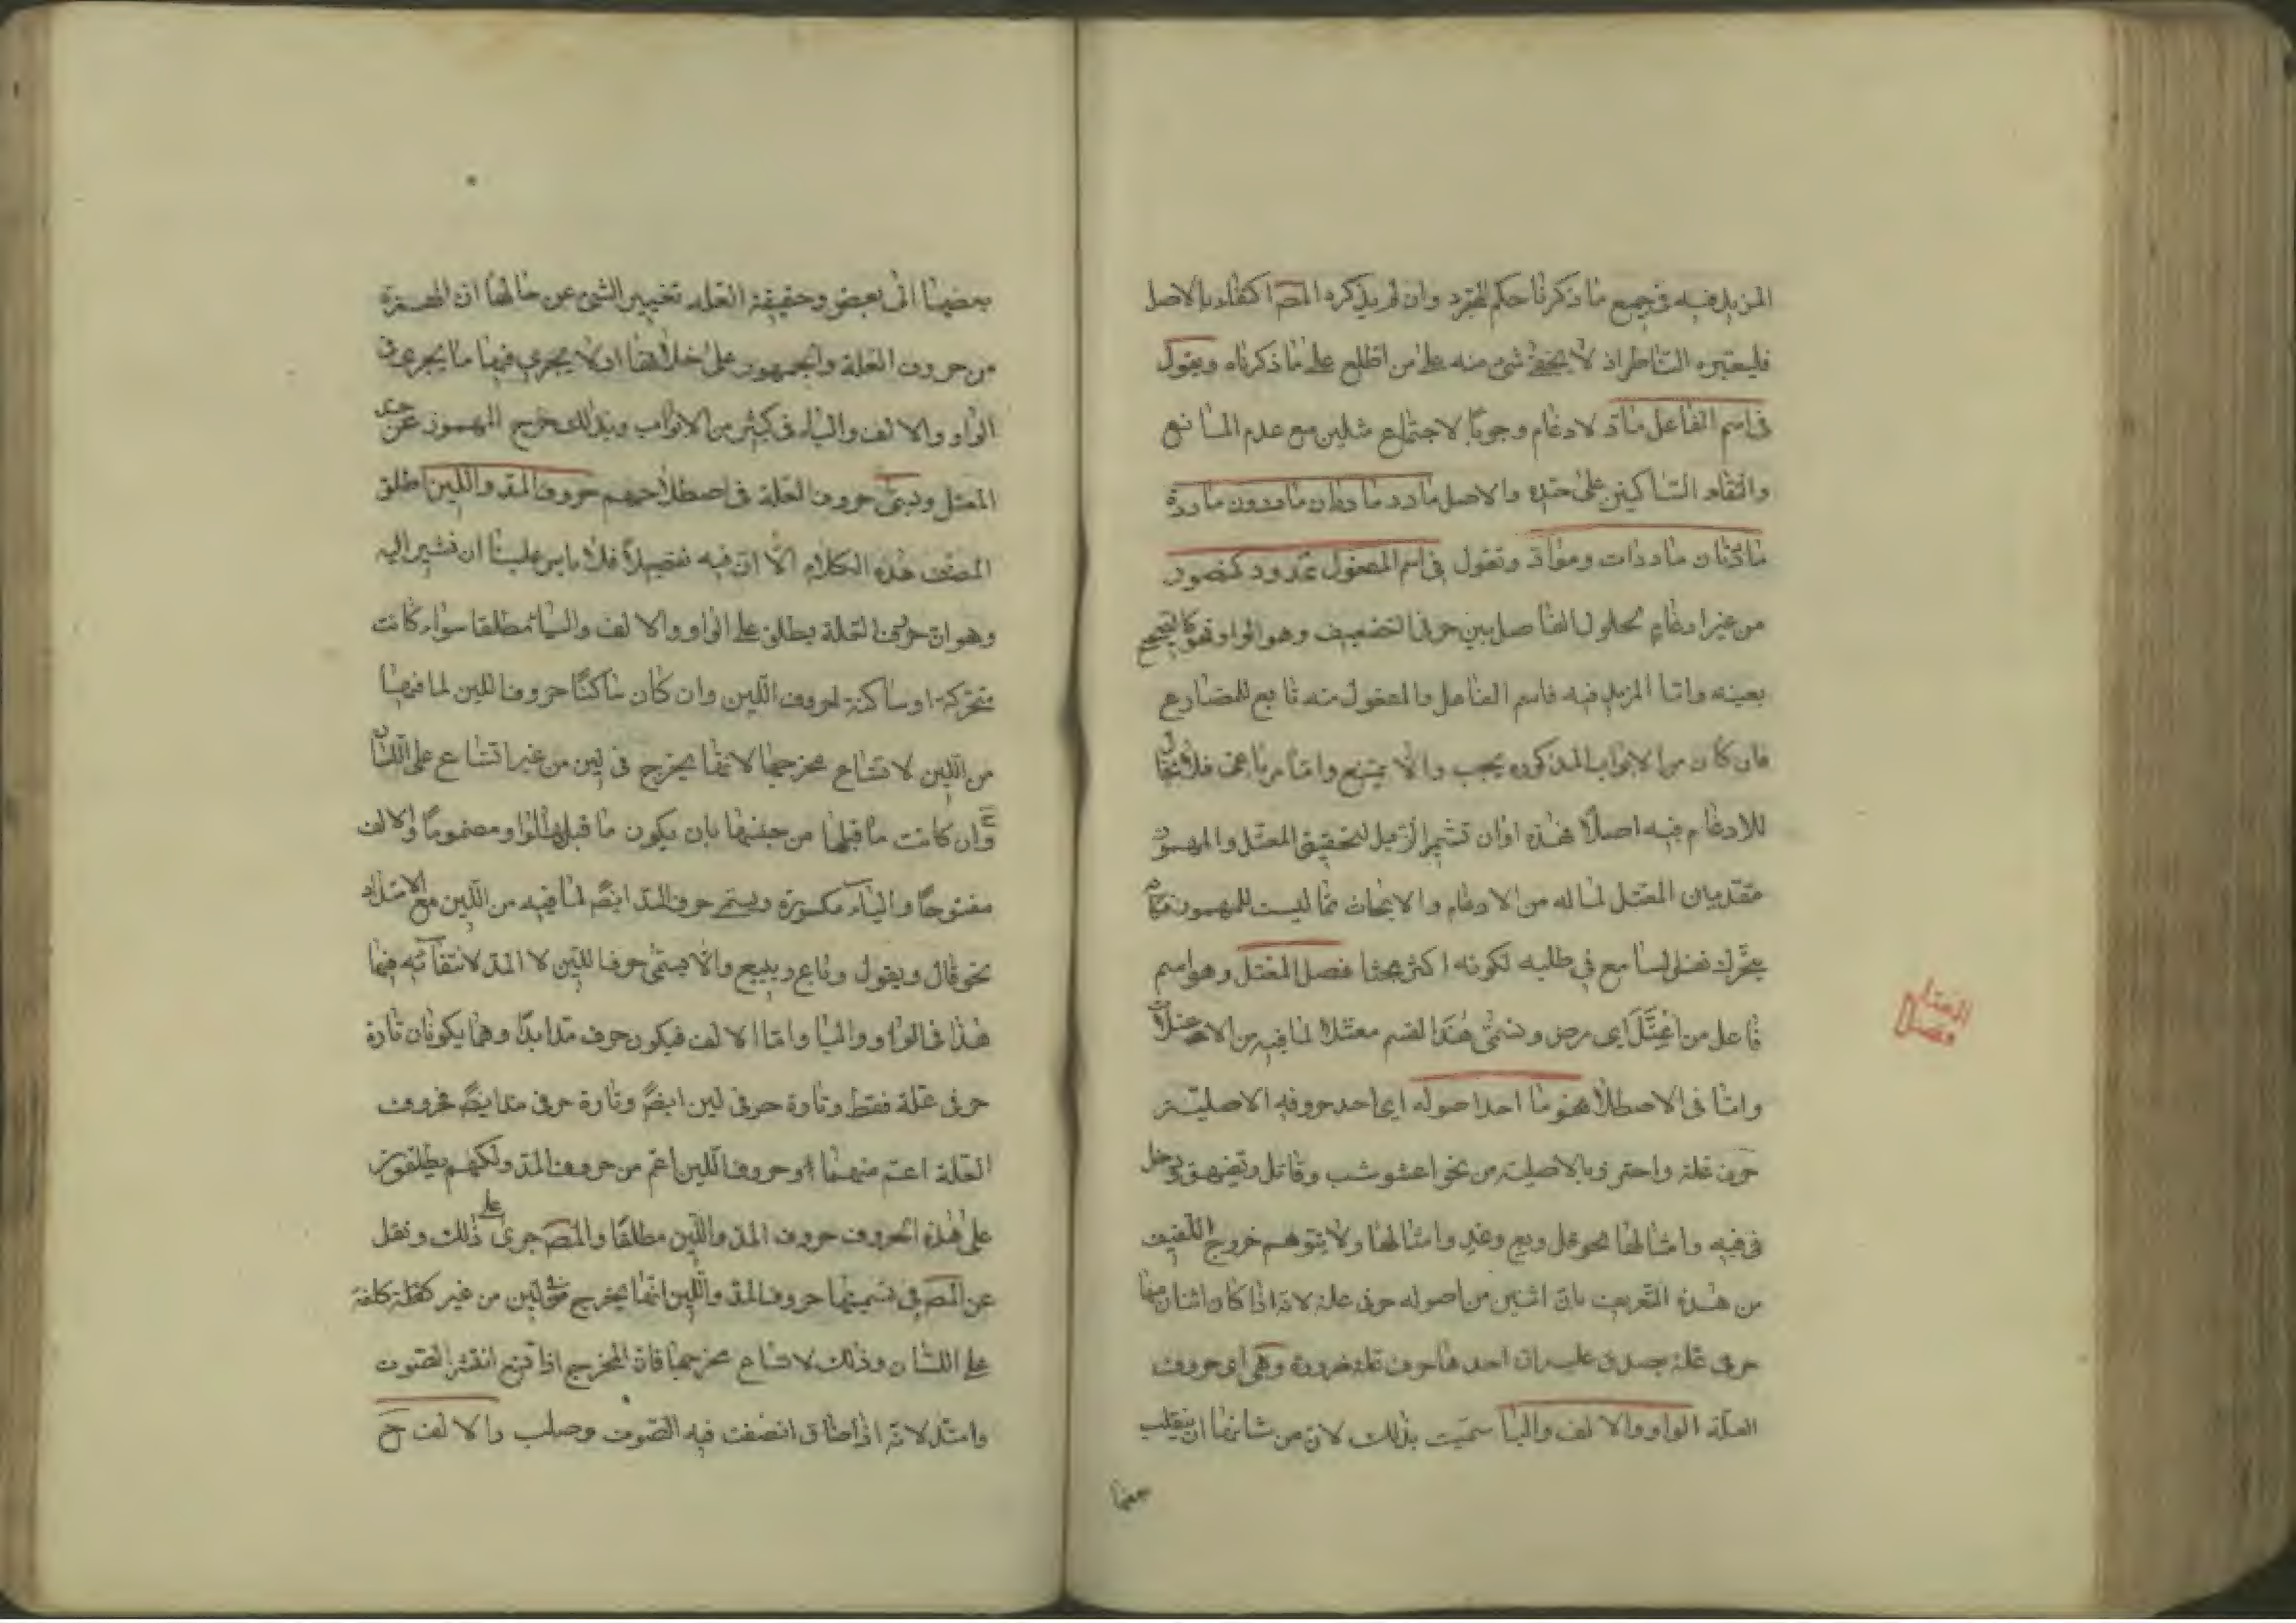 المزيد فيه في جميع ما ذكرنا حكم المجرد وان لم يذكره المصـ اكتفاء بالاصل
فليعتبره الناظر اذ لا يخفى شئ منه على من اطلع على ما ذكرناه ويقول
في اسم الفاعل مادّ لادغام وجوبًا لاجتماع مثلين مع عدم المانع
والتقاء الساكنين على حدّه والاصل مادد مادان مادون مادة
مادّتان ماددات وموادّ وتقول في اسم المفعول ممدود كمنصور
من غير ادغامٍ لحلول الفاصل بين حرفي التضعيف وهو الواو فهو كالصحيح
بعينه واما المزيد فيه فاسم الفاعل والمفعول منه تابع للمضارع
فان كان من الابواب المذكوره يجب والا يمتنع واما رباعى فلا مجال
للادغام فيه اصلًا هذه اوان تشمير الذيل لتحقيق المعتل والمهموز
مقدمين المعتل لما له من الادغام والابحاث مما ليست للمهموز
يحرك السامع في طلبه لكونه اكثر بحثا فصل المعتل وهو اسم
فاعل من اعْتَلَّ اى مرض ونسمّى هذا القسم معتلا لما فيه من الاعتلال
واما في الاصطلاح هو ما احد اصوله اى احد حروفه الاصليّة
حرف علة واحترز بالاصلية من نحو اعشوشب وقاتل ودخل
في فيه وامثالها نحو عل وبع وعد وامثالها ولا يتوهم خروج اللفيف
من هذه التعريف بان اثنين من اصوله حرف علة لانه اذا كان اثنان منها
حرفي علة يصدق عليه ان احدها حرف علة ضرورة وهى اى حروف
العلّة الواو والالف واليا سميت بذلك لان من شانها ان ينقلب
بعضها
المعتل
فصل
بعضها الى بعض وحقيقة العلة تغيير الشئ عن حالها ان الهمزة
من حروف العلة والجمهور على خلافها اذ لا يجرى فيها ما يجرى في
الواو والالف والياء في كثير من الابواب وبذلك خرج المهموز عن حدى
المعتل وتسمّى حروف العلة في اصطلاحهم حروف المد واللين اطلق
المصنف هذه الكلام الّا ان فيه تفصيلًا فلا باس علينا ان نشير اليه
وهو ان حرف العلة يطلق على الواو والالف والياء مطلقا سواء كانت
متحركة او ساكنة لحروف اللين وان كان ساكنًا حروف اللين لما فيها
من اللين لاتساع مخرجها لانها يخرج في لين من غير اتساع على اللسان
وان كانت ما قبلها من جنسها بان يكون ما قبل الواو مضمومًا والالف
مفتوحًا والياء مكسورة ويسمى حرف المد ايضًا لما فيه من اللين مع الامتداد
نحو قال ويقول وباع ويبيع والا يسمّى حرف اللين لا المد لانتفائه فيها
هذا في الواو واليا واما الالف فيكون حرف مد ابدًا وهما يكونان تارة
حرفي علة فقط وتارة حرفي لين ايضًا وتارة حرفي مد ايضًا فحروف
العلة اعم منهما وحروف اللين اعم من حروف المد ولكنهم يطلقون
على هذه الحروف حروف المد واللين مطلقًا والمصـ جرى على ذلك ونقل
عن المصـ في تسميتها حروف المد واللين انها يخرج في لين من غير كلفة
على اللسان وذلك لاتساع مخرجها فان المخرج اذا اتسع انتشر الصوت
وامتد لانه اذا ضاق انضغط فيه الصوت وصلب والالف ح